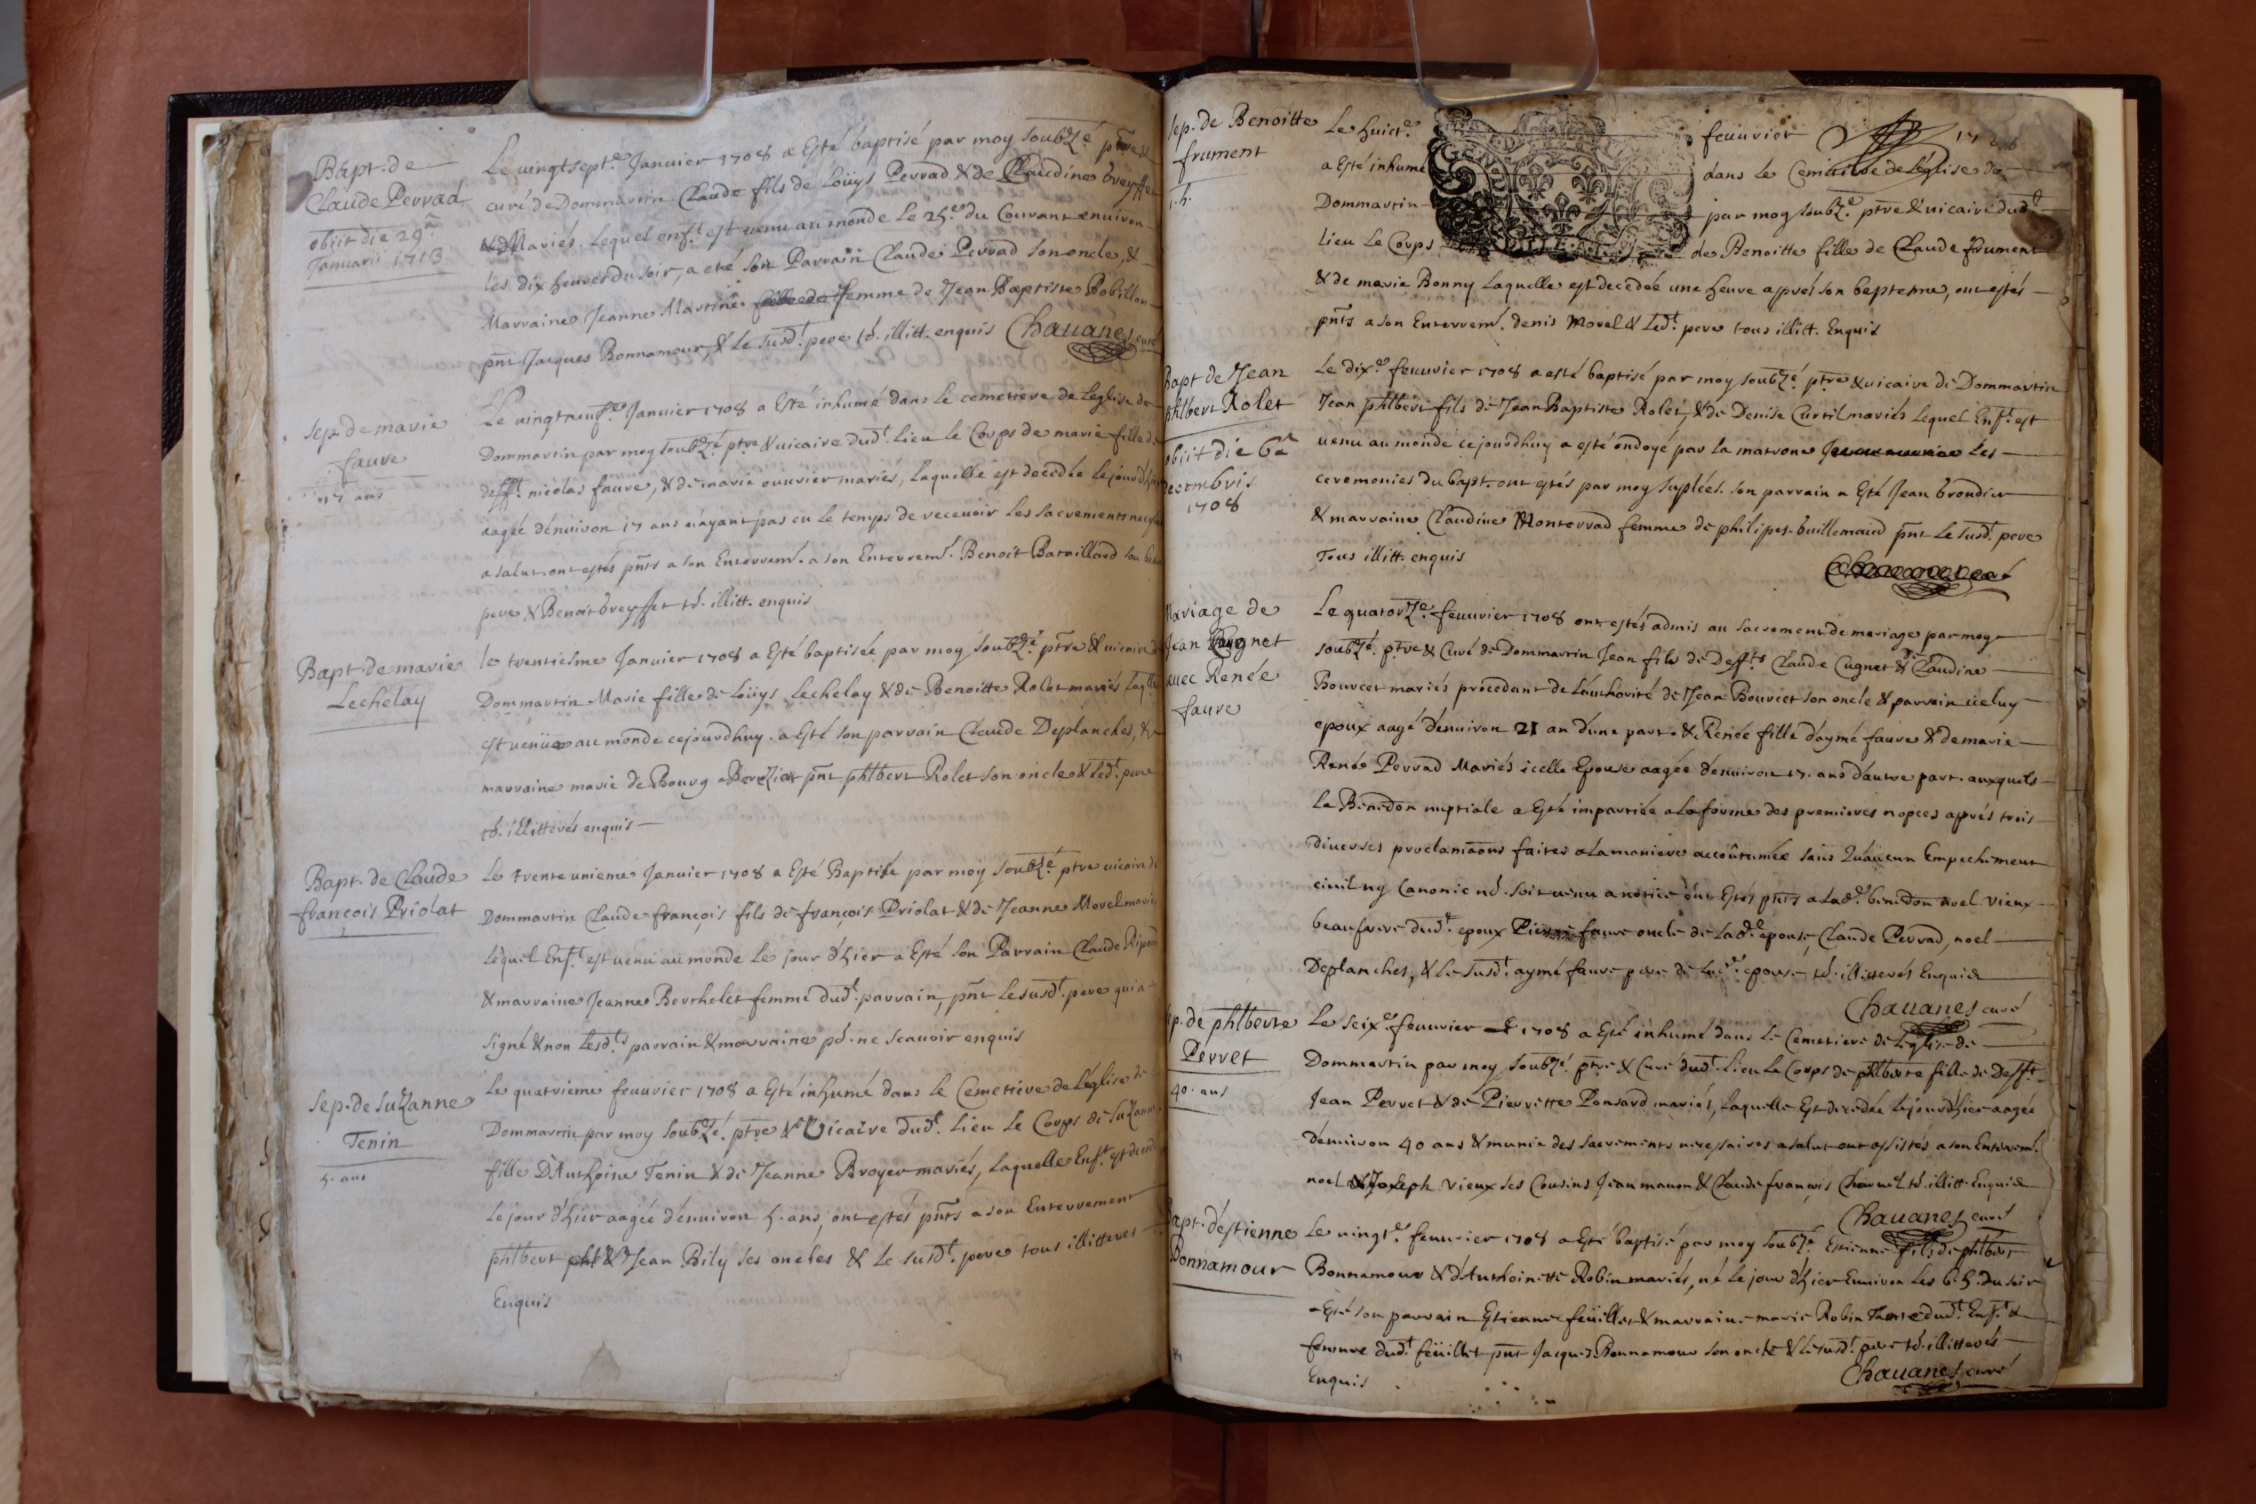 Bapt. de
Claude Perrad
obiit die 29ª
Januarii 1713
Le vingt sept.e Janvier 1708 a Esté baptisé par moy soubzé ptre &
curé de Dommartin Claude fils de Loüys Perrad & de Claudine breyffet
Mariés. Lequel enf.t est venu au monde le 25.e du Courant environ
les dix heures du soir, a eté son Parrain Claude Perrad son oncle, &
Marraine Jeanne Martine femme de Jean Baptiste Robillon
pnt Jacques Bonnamour, & le susd.t pere td. illitt. enquis Chauanes curé
sep. de marie
faure
17 ans
Le vingtneuf.e Janvier 1708 a Esté inhumé dans le cemetiere de Leglise de
Dommartin par moy soubzé ptre & vicaire dud.t lieu le Corps de marie fille de
deff.t nicolas faure, & de marie ouurier mariés, Laquelle est decedée le jour d'hier
aagée d'enuiron 17 ans n'ayant pas eu le temps de receuoir les sacrements
a salut. ont estés pnts a son Enterrem.t a son Enterrem.t Benoit Bataillard son beau
pere & Benoit breyffet td. illitt. enquis
Bapt. de marie
Lechelay
le trentiesme Janvier 1708 a Esté baptisée par moy soubzé ptre & vicaire de
Dommartin Marie fille de Loüys Lechelay & de Benoitte Rolet mariés Laqlle
est venüe au monde cejourdhuy. a Esté son parrain Claude Deplanches, &
marraine marie de Bourg pnt phlbert Rolet son oncle & led.t pere
td. illitterés enquis
Bapt. de Claude
françois Priolat
Le trente unieme Janvier 1708 a Esté Baptisé par moy soubzé ptre vicaire de
Dommartin Claude françois fils de françois Priolat & de Jeanne Morel mariés
Lequel Enf.t est venu au monde le jour d'hier a Esté son Parrain Claude
& marraine Jeanne Berthelet femme dud.t parrain, pnt le susd.t pere qui a
signé & non lesd.ts parrain & marraine pd. ne scauoir enquis
sep. de suzanne
Tenin
5. ans
Le quatrieme feuurier 1708 a Esté inhumé dans le Cemetiere de Léglise de
Dommartin par moy soubzé. ptre & Vicaire dud.t Lieu le Corps de suzanne
fille D'Anthoine Tenin & de Jeanne Broyer mariés, Laquelle Enf.t est decedée
le jour d'hier aagée d'enuiron 5. ans, ont estes pnts a son Enterrement
phlbert & Jean Bily ses oncles & le susd.t pere tous illitteres
Enquis
sep. de Benoitte
frument
1. h.
Le huict.e feuurier 1708
a Esté inhumé dans le Cemitiere de Léglise de
Dommartin par moy soubz.é ptre & vicaire dud.t
lieu Le Corps de Benoitte fille de Claude frument
& de marie Bonny Laquelle est decedée une heure aprés son bapteme, ont estés
pnts a son Enterrem.t denis Morel & led.t pere tous illitt. Enquis
Bapt de Jean
phlbert Rolet
obiit die 6a
decembris
1708
Le dix.e feuurier 1708 a esté baptisé par moy soubzé ptre & vicaire de Dommartin
Jean phlbert fils de Jean Baptiste Rolet, & de Denise Curtil mariés Lequel Enf.t est
venu au monde cejourdhuy a esté ondoyé par la matrone Les
ceremonies du bapt. ont estés par moy suplées. son parrain a Esté Jean brondin
& marraine Claudine Monterrad femme de philipes buillemaud pnt le susd.t pere
Tous illitt. enquis
Mariage de
Jean Cugnet
auec Renée
faure
Le quatorz.e feuurier 1708 ont estés admis au sacrement de mariage par moy
soubzé ptre & Curé de Dommartin Jean fils de Deff.ts Claude Cugnet & de Claudine
Bourcet mariés procedant de l'authorité de Jean Bourcet son oncle & parrain iceluy
epoux aagé d'enuiron 21 an d'une part. & Renée fille d'aymé faure & de marie
Renée Perrad Mariés icelle Epouse aagée d'enuiron 17. ans d'autre part. auxquels
La Benedon nuptiale a Esté impartiée a la forme des premieres nopces aprés trois
diuerses proclamaons faites a la maniere accoûtumée sans qu'aucun Empechement
ciuil ny Canonic nd. soit uenu a notice ont Estés pnts a lad.e benedon noel Vieux
beaufrere dud.t epoux Pierre faure oncle de lad.e epouse, Claude Perrad, noel
Deplanches, & le susd.t aymé faure pere de lad.e epouse, td. illitterés Enquis
Chauanes curé
sep. de phlberte
Perret
40. ans
Le seix.e feuurier 1708 a Esté inhumé dans le Cemetiere de Léglise de
Dommartin par moy soubzé ptre & Curé dud.t Lieu Le Corps de phlberte fille de Deff.t
Jean Perret & de Pierrette Ponsard mariés, Laquelle Est decedée le jour d'hier aagée
d'enuiron 40 ans & munie des sacrements necessaires a salut ont assistés a son Enterrem.t
noel & Joseph Vieux ses Cousins Jean manon & Claude françois Charuel td. illitt. Enquis
Chauanes curé
Bapt. d'estienne
Bonnamour
Le vingt.e feuurier 1708 a Esté baptisé par moy soubzé Estienne fils de phlbert
Bonnamour & d'Anthoinette Robin mariés, né le jour d'hier Enuiron les 6. h. du soir
a Esté son parrain Estienne feüillet & marraine marie Robin Tante dud.t Enf.t &
femme dud.t feüillet pnt Jacques Bonnamour son oncle & le susd.t pere td. illitterés
Enquis
Chauanes curé